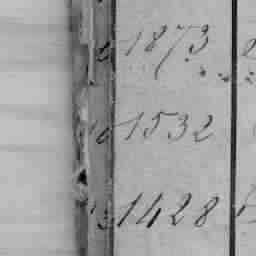 1873
1532
1428